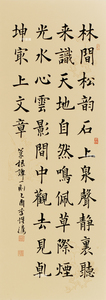 林間松韵石上泉聲静裏聽
来識天地自然鳴佩草際煙
光水心雲影間中觀去見乾
坤冣上文章
菜根譚一則